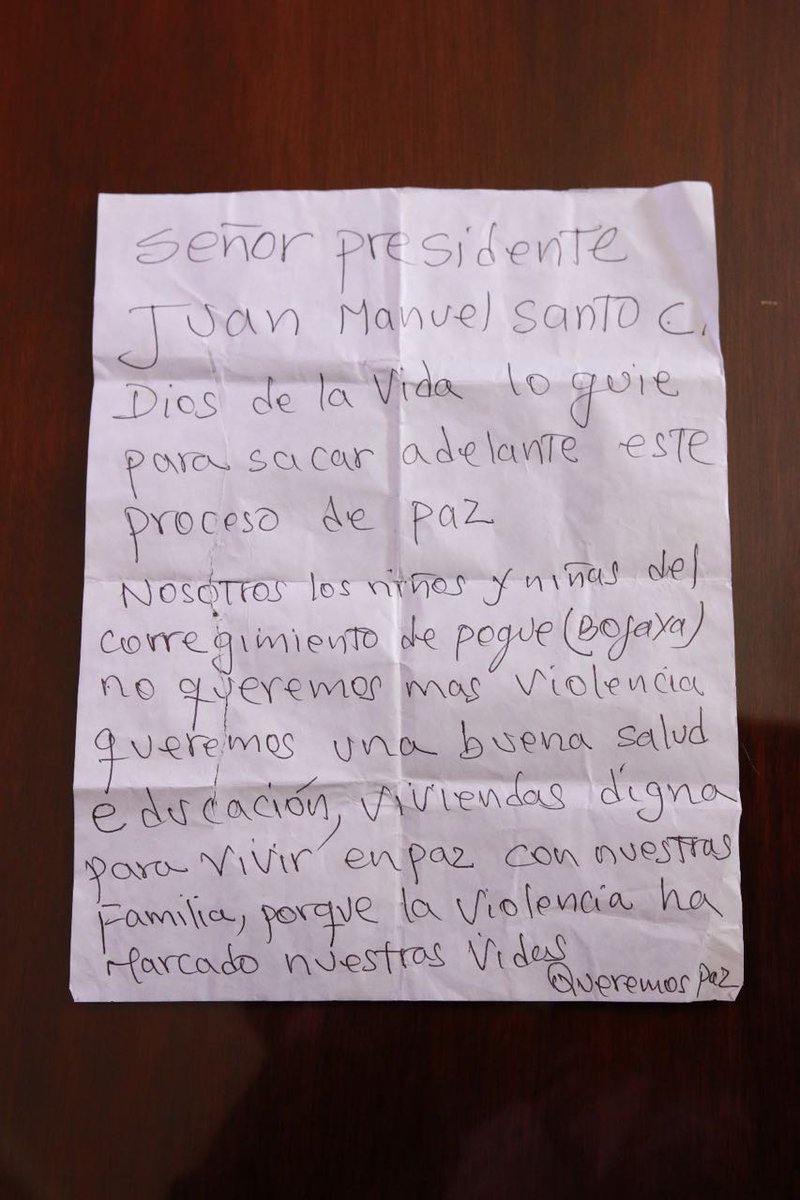 señor presidente
Juan Manuel Santo C.
Dios de la Vida lo guie
para sacar adelante este
proceso de paz
Nosotros los niños y niñas del
corregimiento de pogue (Bojaya)
no queremos mas violencia
queremos una buena salud
educación, viviendas digna
para vivir en paz con nuestras
Familia, porque la violencia ha
Marcado nuestras Vidas
Queremos paz